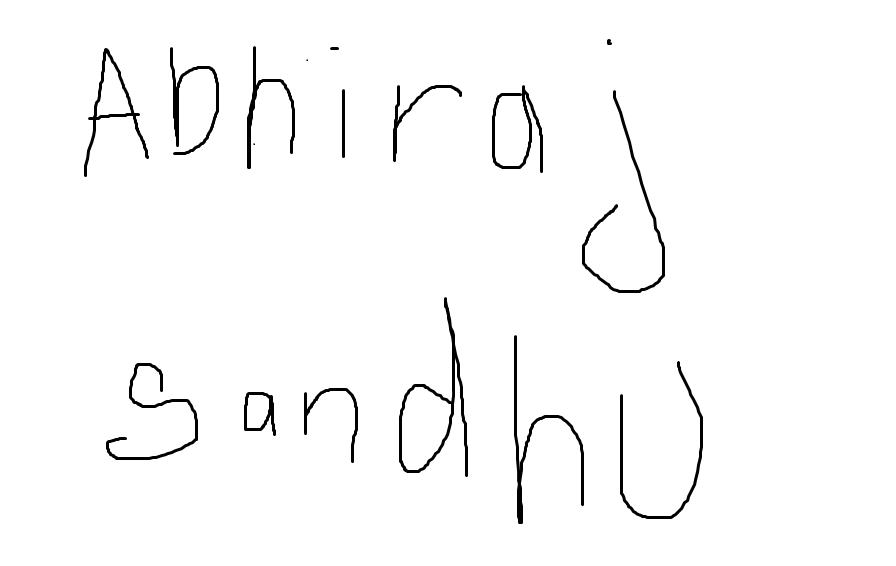 Abhiraj
Sandhu